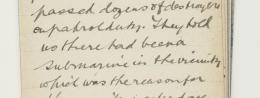 passed dozens of destroyers
on patrol duty. They told
us there had been a
submarine in the vicinity
which was the reason for